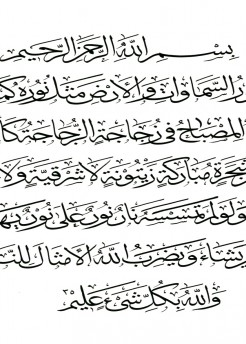 بسم الله الرحمن الرحيم
السماوات والأرض مثل نوره كم
المصباح في زجاجة الزجاجة كأ
شجرة مباركة زيتونة لا شرقية ولا
ولو لم تمسسه نار نور على نور يه
يشاء ويضرب الله الأمثال للنا
والله بكل شيء عليم